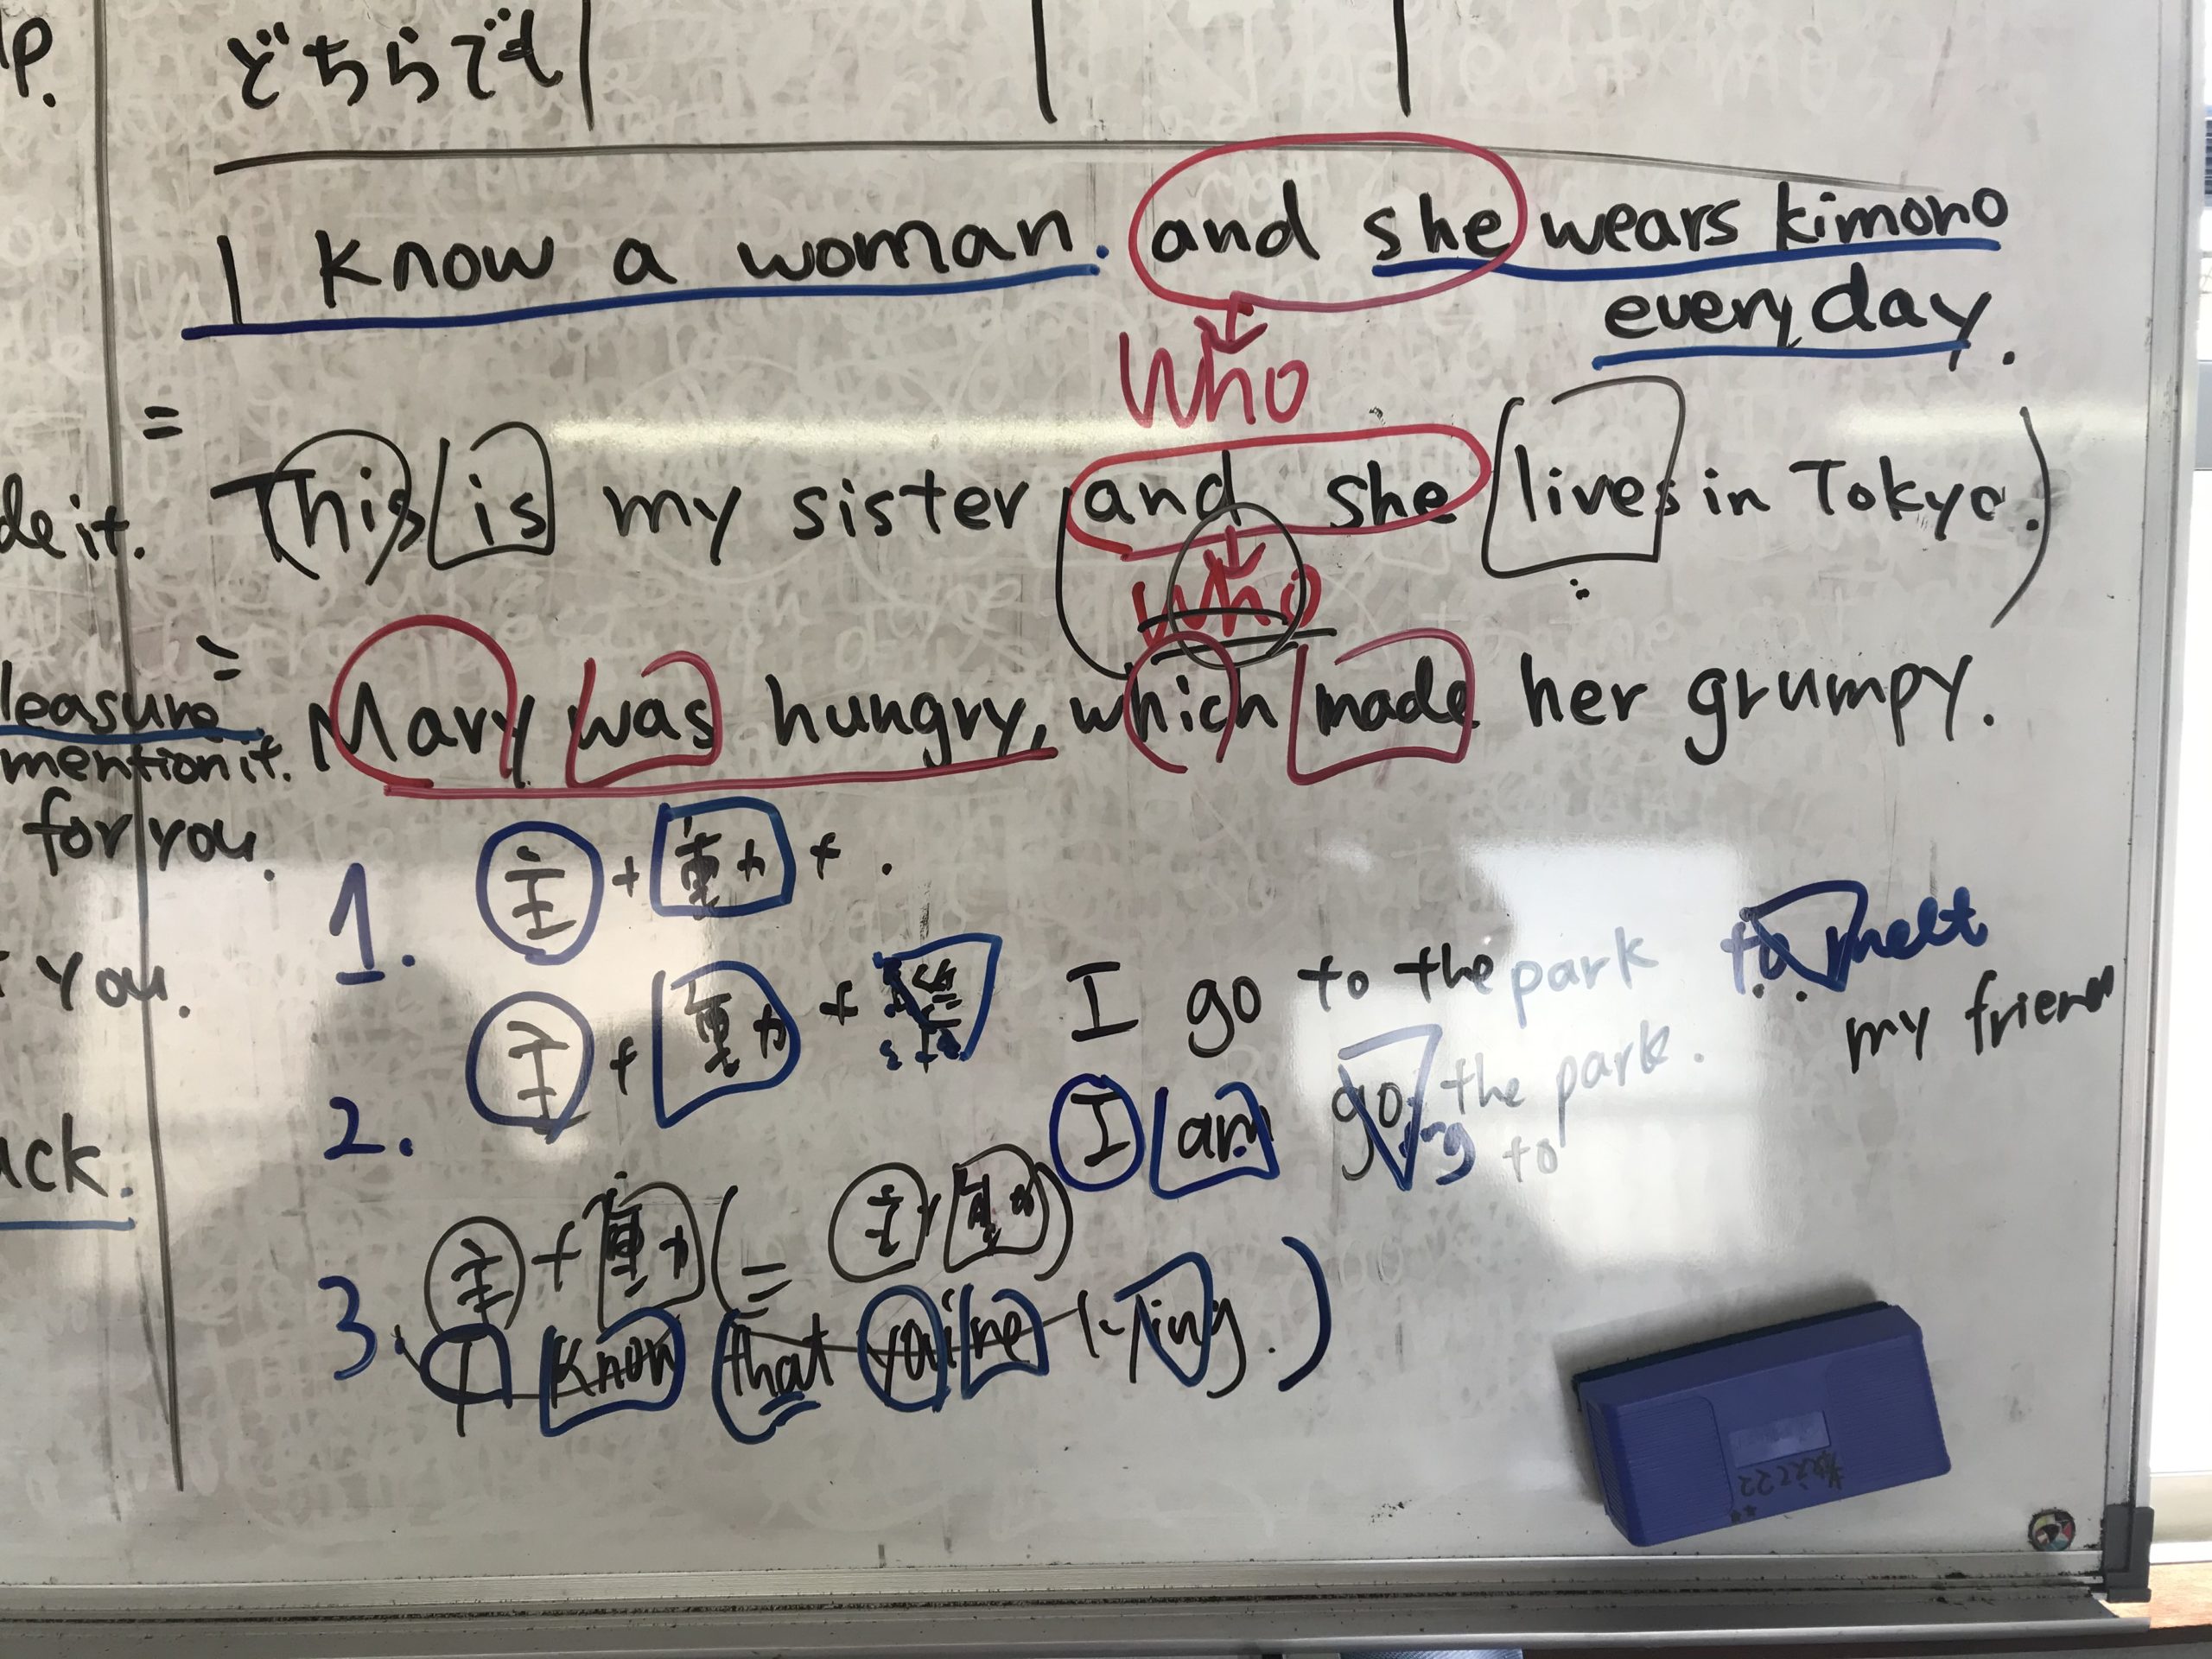 p.
どちらでも
I know a woman. and she wears kimono
everyday.
who
= This is my sister and she lives in Tokyo.)
de it.
who
= Mary was hungry, which made her grumpy.
leasure
mention it.
for you.
1. 主 + 動 + .
I go to the park to melt
my friend
you.
2. 主 + 動 +
I am going to the park.
ck.
3. 主 + 動 (= 主 + 動)
I know that you're lying.)